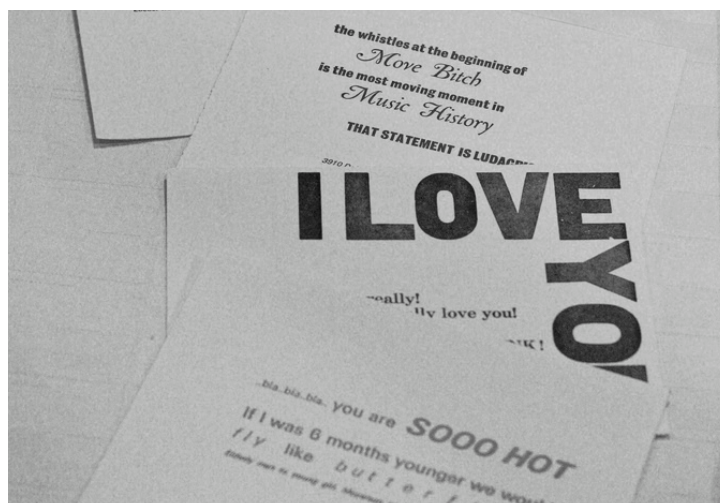 the whistles at the beginning of
Move Bitch
is the most moving moment in
Music History
THAT STATEMENT IS
3910
I LOVE
YO
love you!
..bla..bla..bla.. you are SOOO HOT
If I was 6 months younger we
fly like